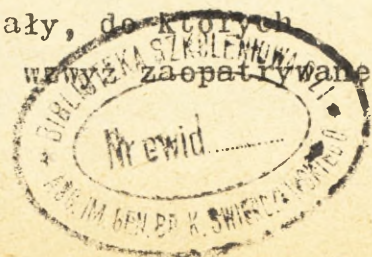 ały, do których
wzwyż zaopatrywane
BIBLIOTEKA SZKOLENIOWA
Nr ewid..........
IM. GEN. BR. K. ŚWIERCZEWSKIEGO